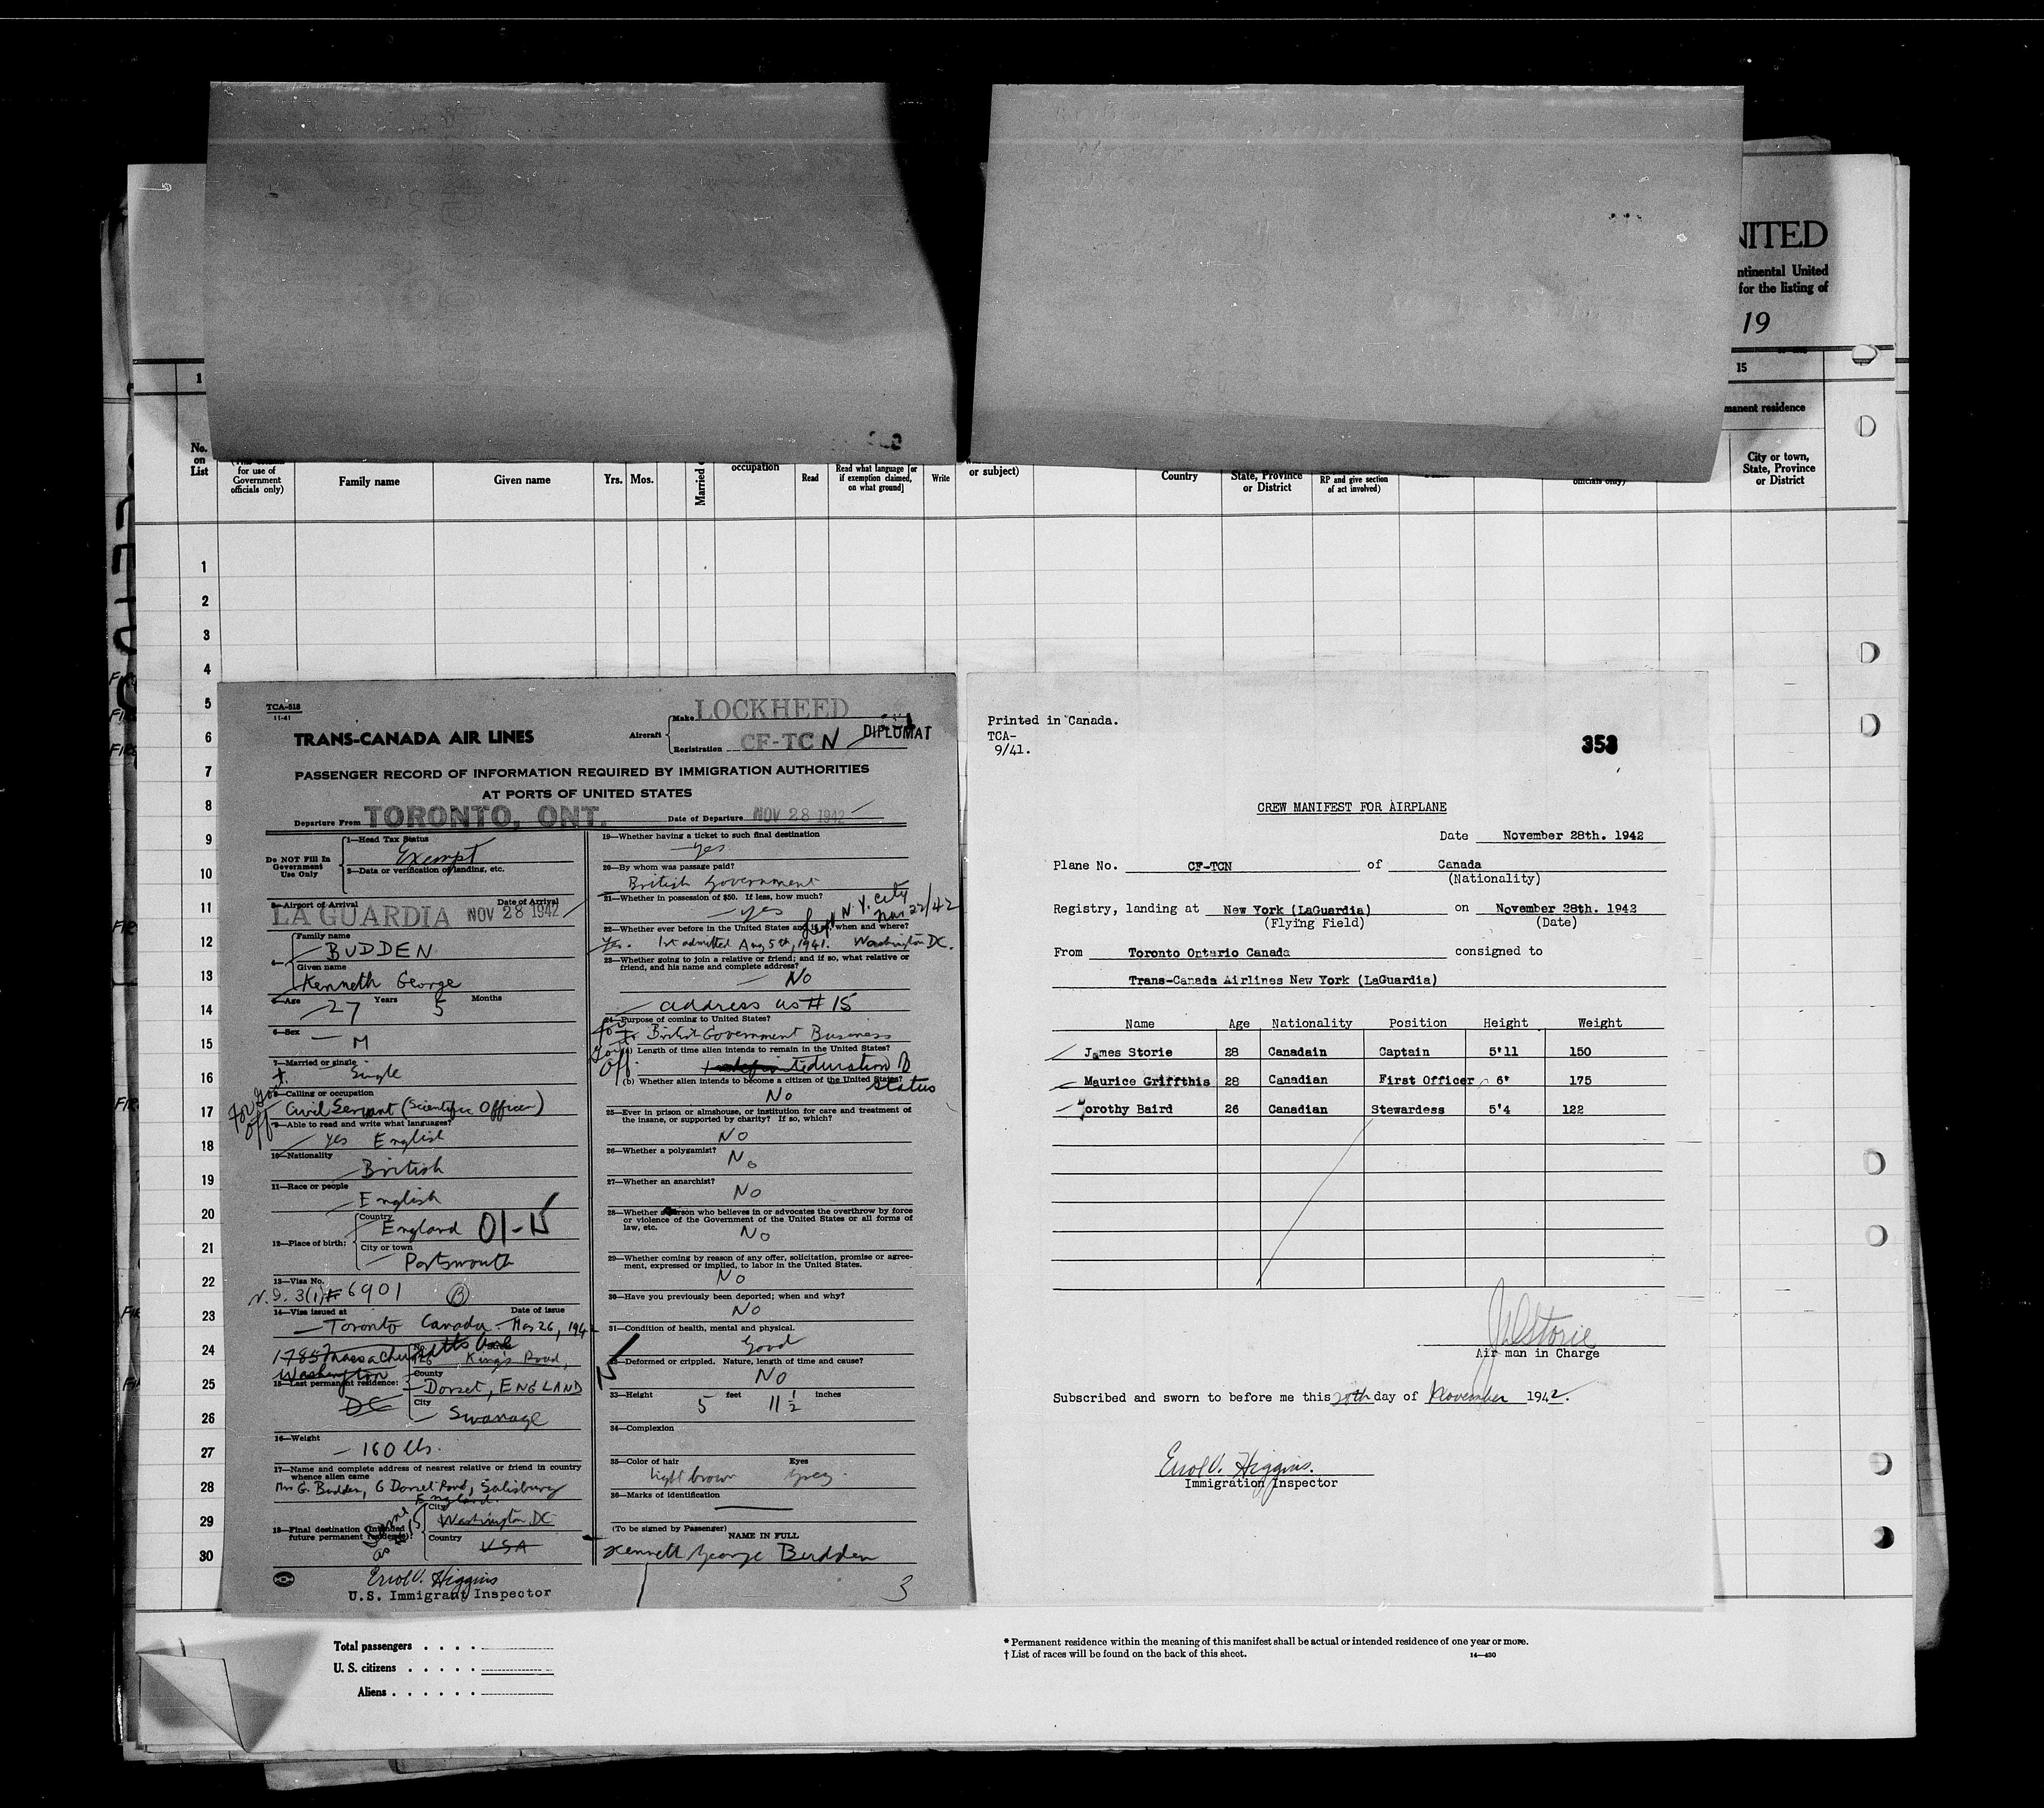 NITED
ntinental United
for the listing of
19
1
15
manent residence
No.
on
List
for use of
Government
officials only)
Family name
Given name
Yrs.
Mos.
Married
occupation
Read
Read what language [or
if exemption claimed,
on what ground]
Write
or subject)
Country
State, Province
or District
RP and give section
of act involved)
officials only)
City or town,
State, Province
or District
1
2
3
4
5
6
7
8
9
10
11
12
13
14
15
16
17
18
19
20
21
22
23
24
25
26
27
28
29
30
TCA-518
11-41
TRANS-CANADA AIR LINES
Aircraft
Make LOCKHEED
Registration CF-TC N
DIPLOMAT
PASSENGER RECORD OF INFORMATION REQUIRED BY IMMIGRATION AUTHORITIES
AT PORTS OF UNITED STATES
Departure From TORONTO, ONT.
Date of Departure NOV 28 1942
Do NOT Fill In
Government
Use Only
1—Head Tax Status
Exempt
2—Data or verification of landing, etc.
3—Airport of Arrival
Date of Arrival
LA GUARDIA NOV 28 1942
Family name
BUDDEN
Given name
Kenneth George
5—Age 27 Years 5 Months
6—Sex
M
7—Married or single
Single
8—Calling or occupation
for Gov
Off
Civil Servant (Scientific Officer)
9—Able to read and write what languages?
Yes English
10—Nationality
British
11—Race or people
English
12—Place of birth:
Country
England 01-15
City or town
Portsmouth
13—Visa No.
N.I. 3(1) # 6901 B
14—Visa issued at
Date of issue
Toronto Canada - Mar 26, 194
1785 Massachusetts Ave
Washington
DC
15—Last permanent residence:
126 King's Road,
County
Dorset, ENGLAND
City
Swanage
16—Weight
160 lbs.
17—Name and complete address of nearest relative or friend in country
whence alien came
Mrs G. Budden, 6 Dorset Road, Salisbury
England.
18—Final destination (Intended
future permanent residence)?
Same
as # 15
City
Washington DC
Country
USA
Errol V. Higgins
U.S. Immigrant Inspector
19—Whether having a ticket to such final destination
Yes
20—By whom was passage paid?
British Government
21—Whether in possession of $50. If less, how much?
Yes
N.Y. City
Nov 22/42
22—Whether ever before in the United States and if so, when and where?
Yes. 1st admitted Aug 5th, 1941. Washington DC.
23—Whether going to join a relative or friend; and if so, what relative or
friend, and his name and complete address?
No
address as # 15
24—Purpose of coming to United States?
for
Gov
Off.
British Government Business
(a) Length of time alien intends to remain in the United States?
duration D
status
(b) Whether alien intends to become a citizen of the United States?
No
25—Ever in prison or almshouse, or institution for care and treatment of
the insane, or supported by charity? If so, which?
No
26—Whether a polygamist?
No
27—Whether an anarchist?
No
28—Whether a person who believes in or advocates the overthrow by force
or violence of the Government of the United States or all forms of
law, etc.
No
29—Whether coming by reason of any offer, solicitation, promise or agree-
ment, expressed or implied, to labor in the United States.
No
30—Have you previously been deported; when and why?
No
31—Condition of health, mental and physical.
Good
32—Deformed or crippled. Nature, length of time and cause?
No
33—Height
5 feet 11 1/2 inches
34—Complexion
35—Color of hair
Eyes
light brown
Grey
36—Marks of identification
(To be signed by Passenger)
NAME IN FULL
Kenneth George Budden
3
Printed in Canada.
TCA-
9/41.
353
CREW MANIFEST FOR AIRPLANE
Date November 28th. 1942
Plane No. CF-TCN of Canada
(Nationality)
Registry, landing at New York (LaGuardia) on November 28th. 1942
(Flying Field)
(Date)
From Toronto Ontario Canada consigned to
Trans-Canada Airlines New York (LaGuardia)
Name Age Nationality Position Height Weight
James Storie 28 Canadain Captain 5'11 150
Maurice Griffthis 28 Canadian First Officer 6' 175
Dorothy Baird 26 Canadian Stewardess 5'4 122
Air man in Charge
Subscribed and sworn to before me this 28th day of November 1942.
Errol V. Higgins.
Immigration Inspector
Total passengers . . . .
U. S. citizens . . . . .
Aliens . . . . . .
* Permanent residence within the meaning of this manifest shall be actual or intended residence of one year or more.
† List of races will be found on the back of this sheet.
14—430